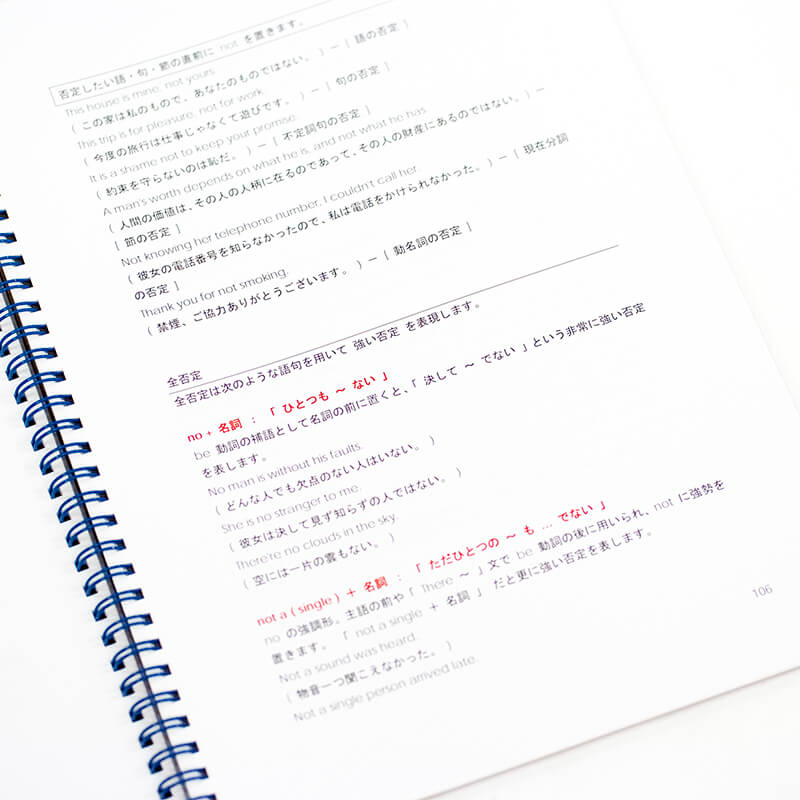 否定したい語・句・節の直前に not を置きます。
This house is mine, not yours.
( この家は私のもので、あなたのものではない。 ) ー [ 語の否定 ]
This trip is for pleasure, not for work.
( 今度の旅行は仕事じゃなくて遊びです。 ) ー [ 句の否定 ]
It is a shame not to keep your promise.
( 約束を守らないのは恥だ。 ) ー [ 不定詞句の否定 ]
A man's worth depends on what he is, and not what he has.
( 人間の価値は、その人の人柄に在るのであって、その人の財産にあるのではない。) ー
[ 節の否定 ]
Not knowing her telephone number, I couldn't call her.
( 彼女の電話番号を知らなかったので、私は電話をかけられなかった。 ) ー [ 現在分詞
の否定 ]
Thank you for not smoking.
( 禁煙、ご協力ありがとうございます。 ) ー [ 動名詞の否定 ]
全否定
全否定は次のような語句を用いて 強い否定 を表現します。
no + 名詞 : 「 ひとつも ~ ない 」
be 動詞の補語として名詞の前に置くと、「 決して ~ でない 」という非常に強い否定
を表します。
No man is without his faults.
( どんな人でも欠点のない人はいない。 )
She is no stranger to me.
( 彼女は決して見ず知らずの人ではない。 )
There're no clouds in the sky.
( 空には一片の雲もない。 )
not a ( single ) + 名詞 : 「 ただひとつの ~ も … でない 」
no の強調形。主語の前や「 There ~ 」文で be 動詞の後に用いられ、not に強勢を
置きます。 「 not a single + 名詞 」 だと更に強い否定を表します。
Not a sound was heard.
( 物音一つ聞こえなかった。 )
Not a single person arrived late.
106